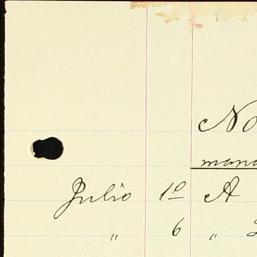 No
mano
Julio 1º A
" 6 "